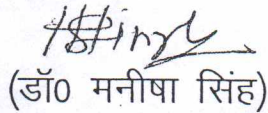 (डॉ0 मनीषा सिंह)